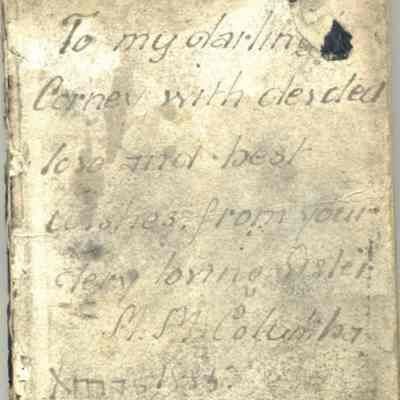 To my darling
Corney, with devoted
love and best
wishes, from your
very loving Sister
Columba
Xmas